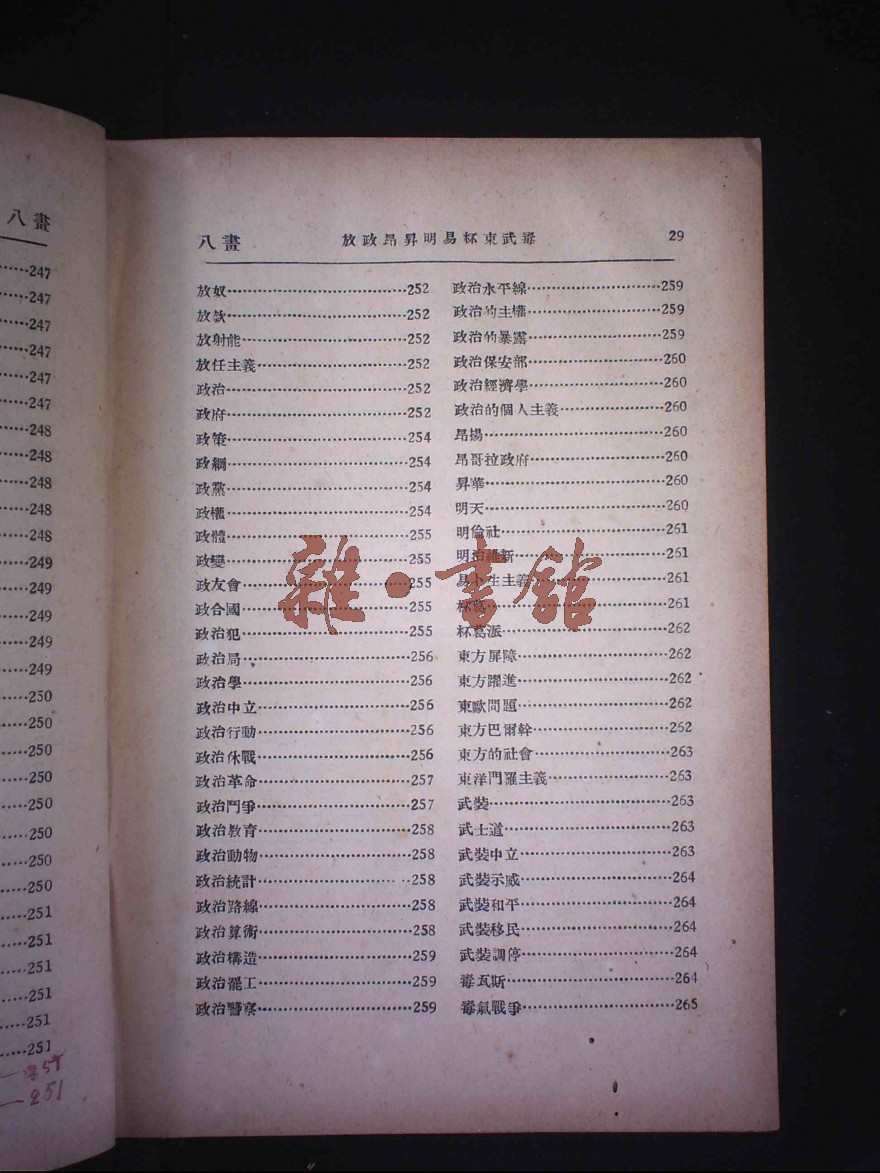 八畫
247
247
247
247
247
247
248
248
248
248
248
249
249
249
249
249
250
250
250
250
250
250
250
250
251
251
251
251
251
251
251
八畫 放政昂昇明易杯東武毒 29
放奴 252
放款 252
放射能 252
放任主義 252
政治 252
政府 252
政策 254
政綱 254
政黨 254
政權 254
政體 255
政變 255
政友會 255
政合國 255
政治犯 255
政治局 256
政治學 256
政治中立 256
政治行動 256
政治休戰 256
政治革命 257
政治鬥爭 257
政治教育 258
政治動物 258
政治統計 258
政治路線 258
政治算術 258
政治構造 259
政治罷工 259
政治警察 259
政治永平線 259
政治的主權 259
政治的暴露 259
政治保安部 260
政治經濟學 260
政治的個人主義 260
昂揚 260
昂哥拉政府 260
昇華 260
明天 260
明倫社 261
明治維新 261
易卜生主義 261
杯葛 261
杯葛派 262
東方屏障 262
東方躍進 262
東歐問題 262
東方巴爾幹 262
東方的社會 263
東洋門羅主義 263
武裝 263
武士道 263
武裝中立 263
武裝示威 264
武裝和平 264
武裝移民 264
武裝調停 264
毒瓦斯 264
毒氣戰爭 265
雜·書館